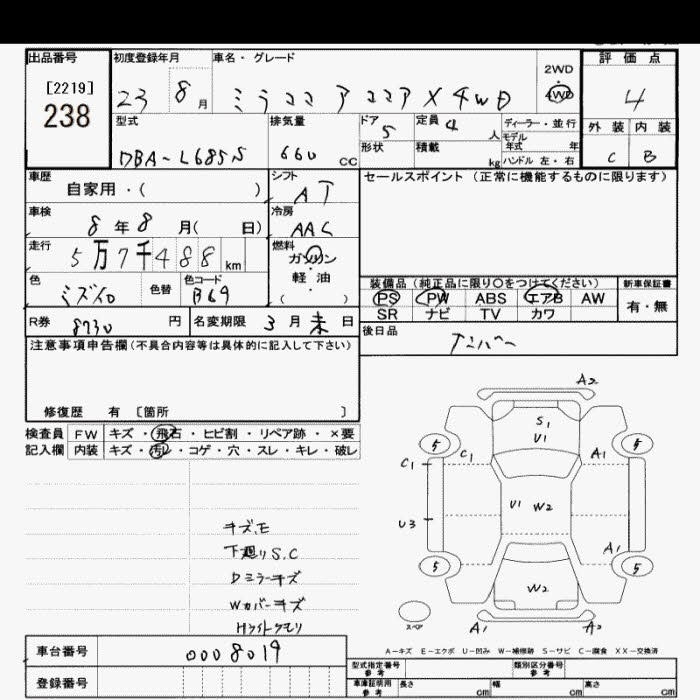 出品番号 初度登録年月 車名・グレード 評価点
[2219]
238
23 8月 ミラココア ココアX 4WD
2WD
4WD
4
型式 排気量 ドア 定員 ディーラー・並行
DBA-L685S 660 CC 5 4 人
モデル年式 年
形状 積載 kg ハンドル 左・右
外装 内装
C B
車歴 シフト セールスポイント(正常に機能するものに限ります)
自家用・( ) AT
車検 冷房
8年8月( 日) AAC
走行 燃料
5万7千488km ガソリン
・
軽油
( )
色 色替 色コード
ミズイロ B69
装備品(純正品に限り〇をつけてください) 新車保証書
PS PW ABS エアB AW 有・無
SR ナビ TV カワ
R券 8730円 名変期限 3月末日
後日品
ナンバー
注意事項申告欄(不具合内容等は具体的に記入して下さい)
修復歴 有 [箇所 ]
検査員 FW キズ・飛石・ヒビ割・リペア跡・×要
記入欄 内装 キズ・汚レ・コゲ・穴・スレ・キレ・破レ
キズ、E
下廻りS.C
Dミラーキズ
Wカバーキズ
Hライトクモリ
A2
S1
U1
5 5
C1 C1 A1
U1 W2
U3
A1
5 5
W2
スペア
A1 A2
A-キズ E-エクボ U-凹み W-補修跡 S-サビ C-腐食 XX-交換済
車台番号 0008019
登録番号
型式指定番号 参考 類別区分番号 参考
車庫証明用 参考 長さ cm 幅 cm 高さ cm